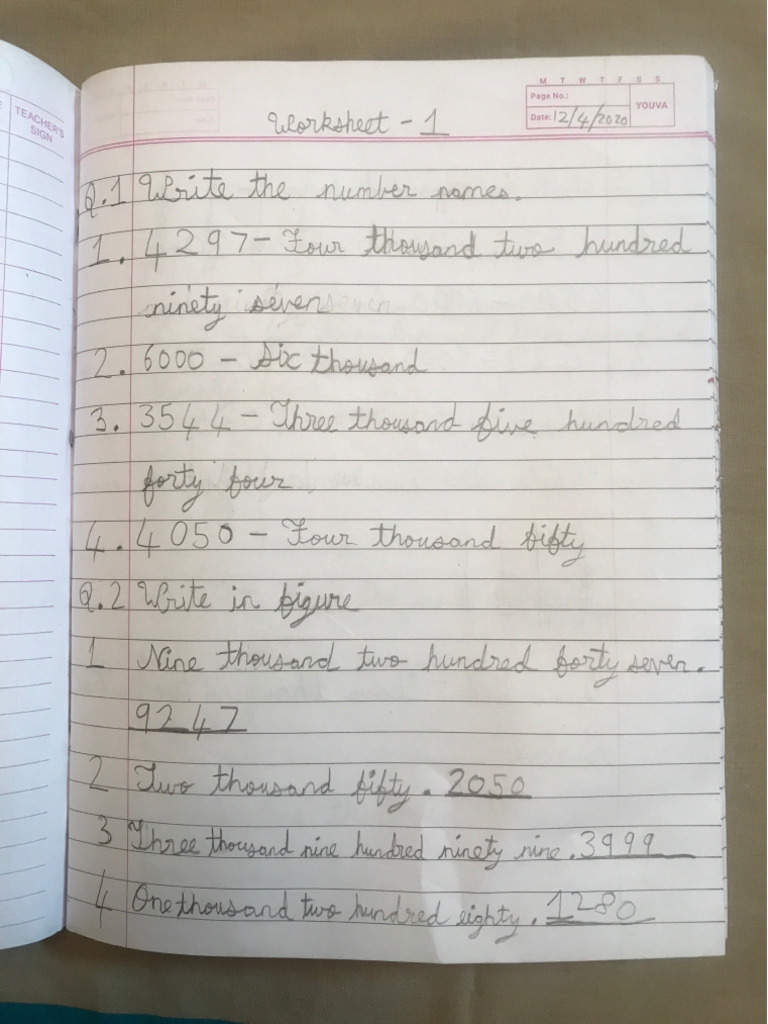 TEACHER'S
SIGN
M T W T F S S
Page No.:
YOUVA
Date: 12/4/2020
Worksheet - 1
Q.1 Write the number names.
1. 4297 - Four thousand two hundred
ninety seven
2. 6000 - Six thousand
3. 3544 - Three thousand five hundred
forty four
4. 4050 - Four thousand fifty
Q.2 Write in figure
1 Nine thousand two hundred forty seven.
9247
2 Two thousand fifty. 2050
3 Three thousand nine hundred ninety nine. 3999
4 One thousand two hundred eighty. 1280